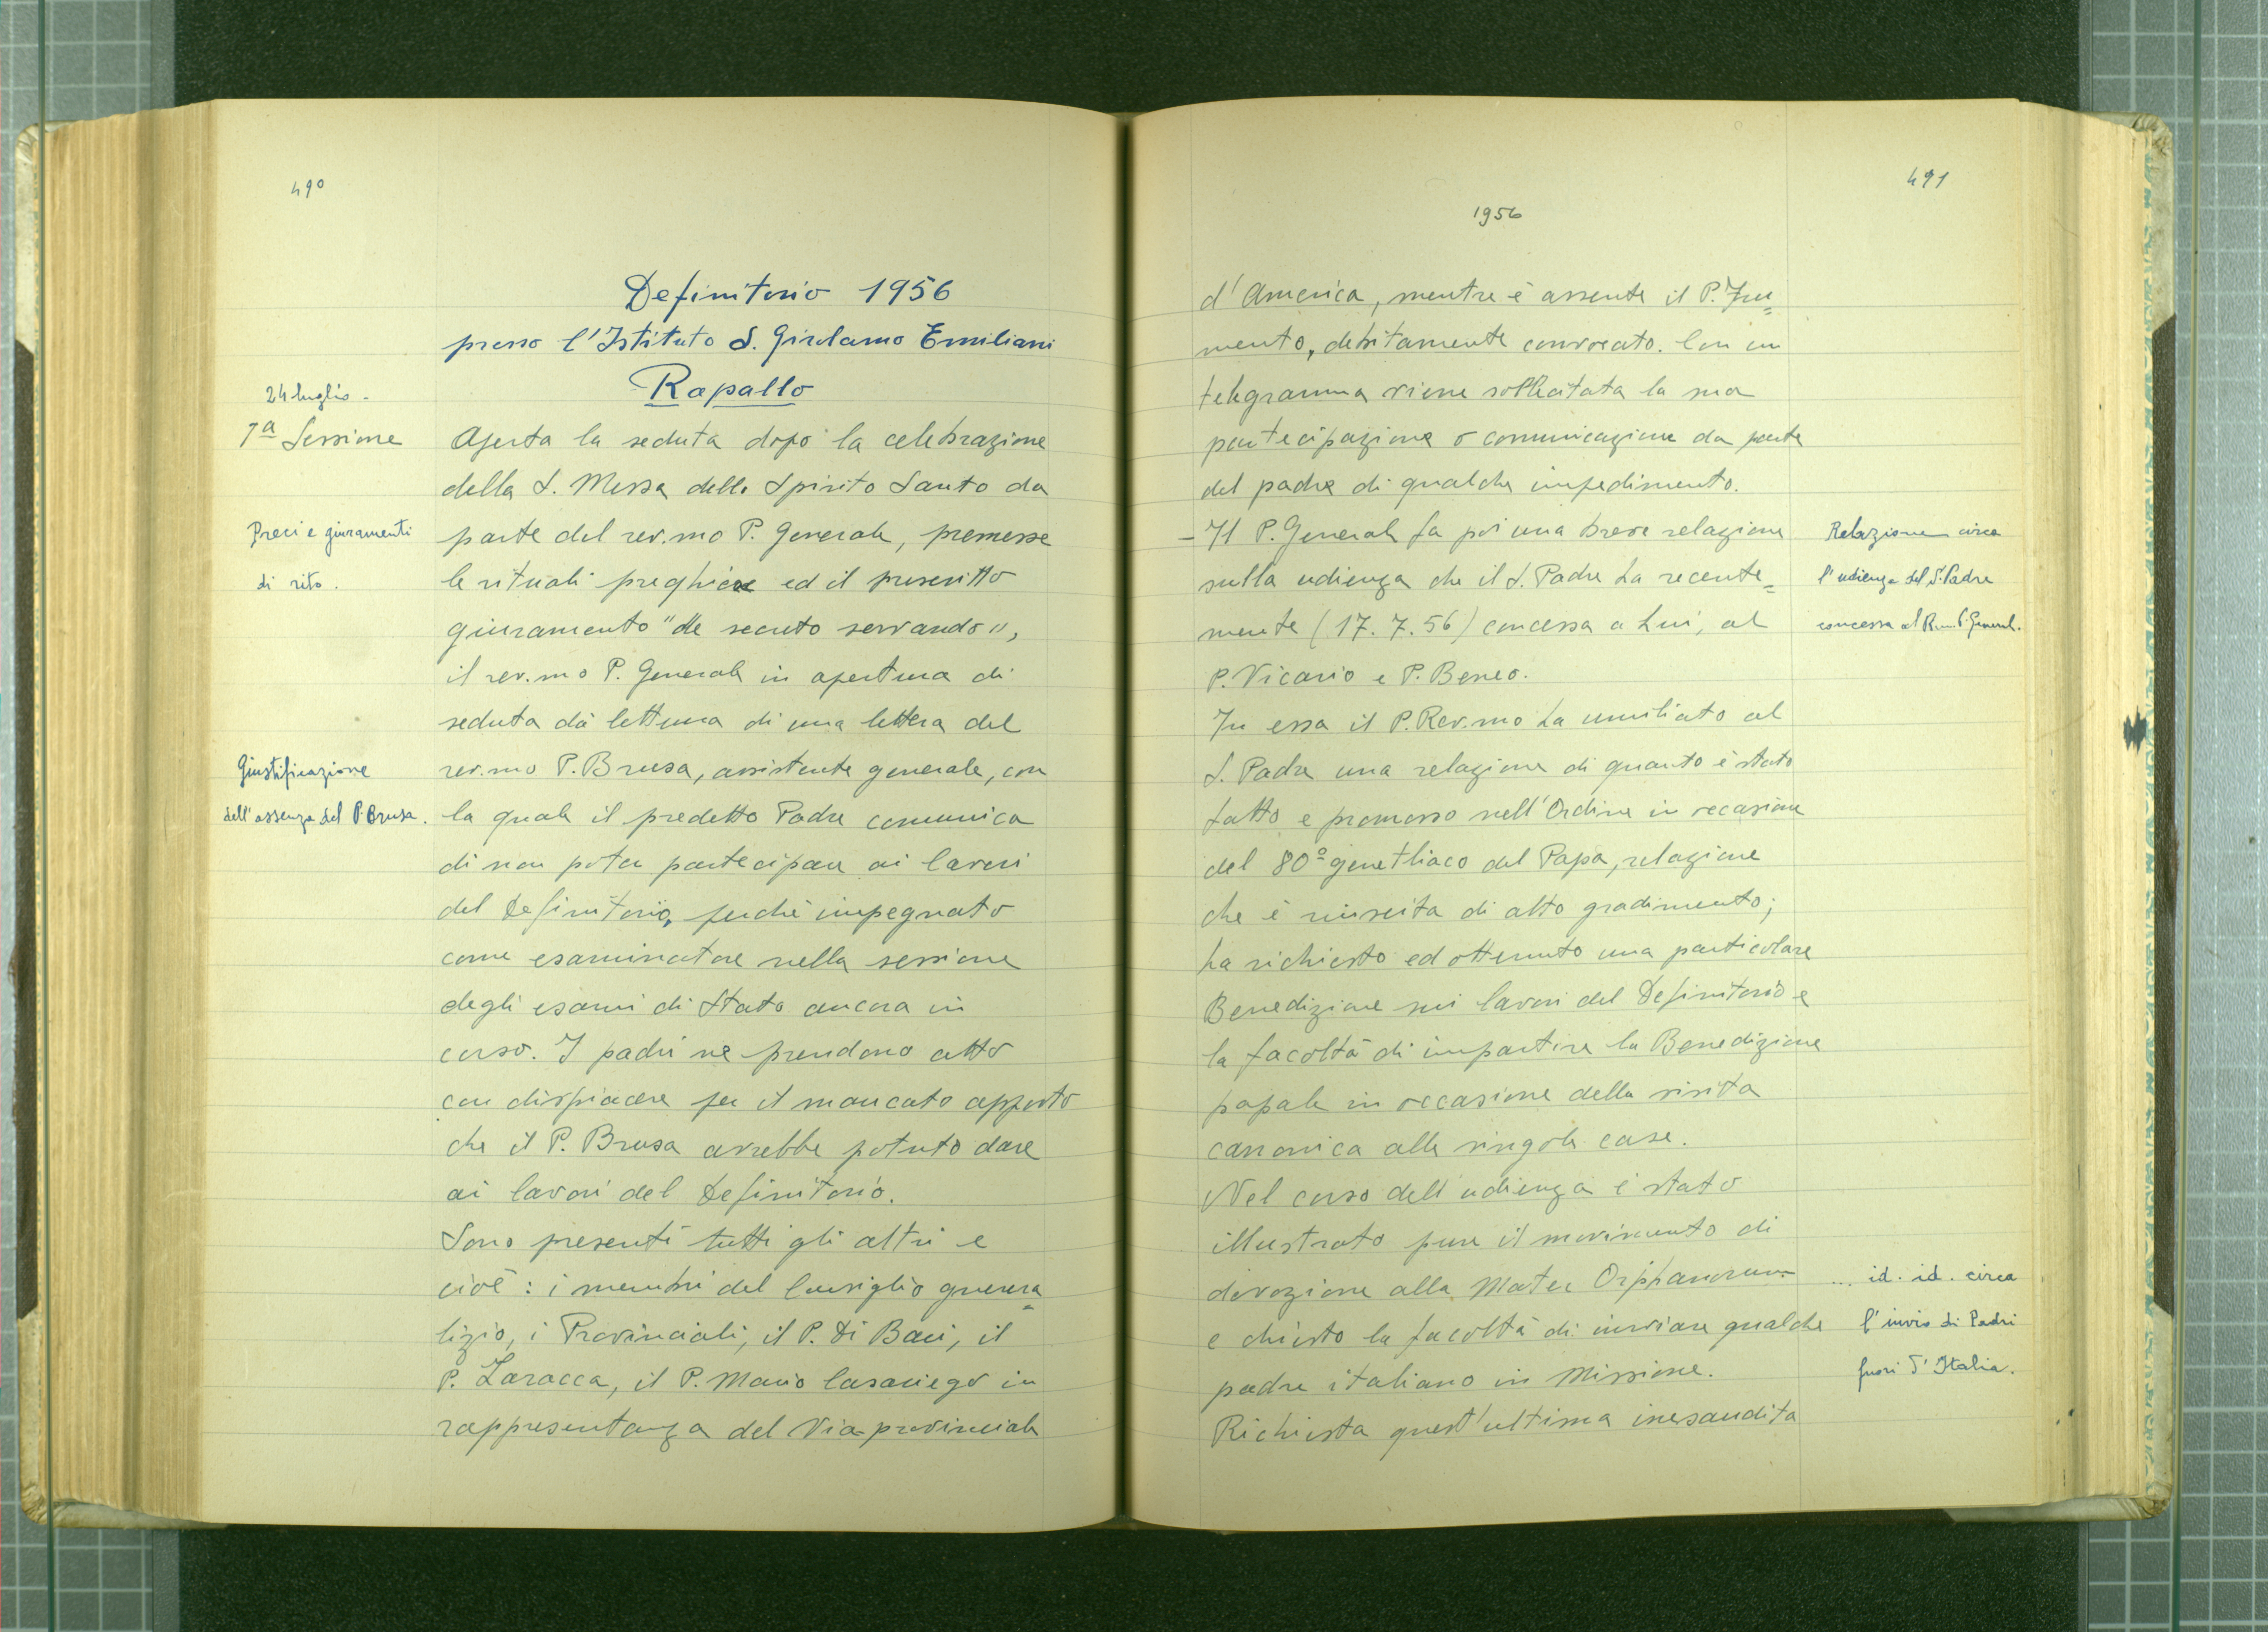 490
Definitorio 1956
presso l'Istituto S. Girolamo Emiliani
Rapallo
24 luglio -
1ª Sessione
Aperta la seduta dopo la celebrazione
della S. Messa dello Spirito Santo da
Preci e giuramenti
parte del rev.mo P. Generale, premesse
di rito.
le rituali preghiere ed il prescritto
giuramento "de secreto servando",
il rev.mo P. Generale in apertura di
seduta dà lettura di una lettera del
Giustificazione
rev.mo P. Brusa, assistente generale, con
dell'assenza del P. Brusa.
la quale il predetto Padre comunica
di non poter partecipare ai lavori
del Definitorio, perché impegnato
come esaminatore nella sessione
degli esami di Stato ancora in
corso. I padri ne prendono atto
con dispiacere per il mancato apporto
che il P. Brusa avrebbe potuto dare
ai lavori del Definitorio.
Sono presenti tutti gli altri e
cioè: i membri del Consiglio genera=
lizio, i Provinciali, il P. Di Bari, il
P. Laracca, il P. Mario Casariego in
rappresentanza del Vice provinciale
491
1956
d'America, mentre è assente il P. Fru=
mento, debitamente convocato. Con un
telegramma viene sollecitata la sua
partecipazione o comunicazione da parte
del padre di qualche impedimento.
- Il P. Generale fa poi una breve relazione
sulla udienza che il S. Padre ha recente=
mente (17.7.56) concessa a Lui, al
P. Vicario e P. Beneo.
Relazione circa
l'udienza del S. Padre
concessa al Rev.mo P. General.
In essa il P. Rev.mo ha umiliato al
S. Padre una relazione di quanto è stato
fatto e promosso nell'Ordine in occasione
del 80º genetliaco del Papa, relazione
che è riuscita di alto gradimento;
ha richiesto ed ottenuto una particolare
Benedizione sui lavori del Definitorio e
la facoltà di impartire la Benedizione
papale in occasione della visita
canonica alle singole case.
Nel corso dell'udienza è stato
illustrato pure il movimento di
devozione alla Mater Orphanorum
e chiesto la facoltà di inviare qualche
padre italiano in Missione.
... id. id. circa
l'invio di Padri
fuori d'Italia.
Richiesta quest'ultima inesaudita